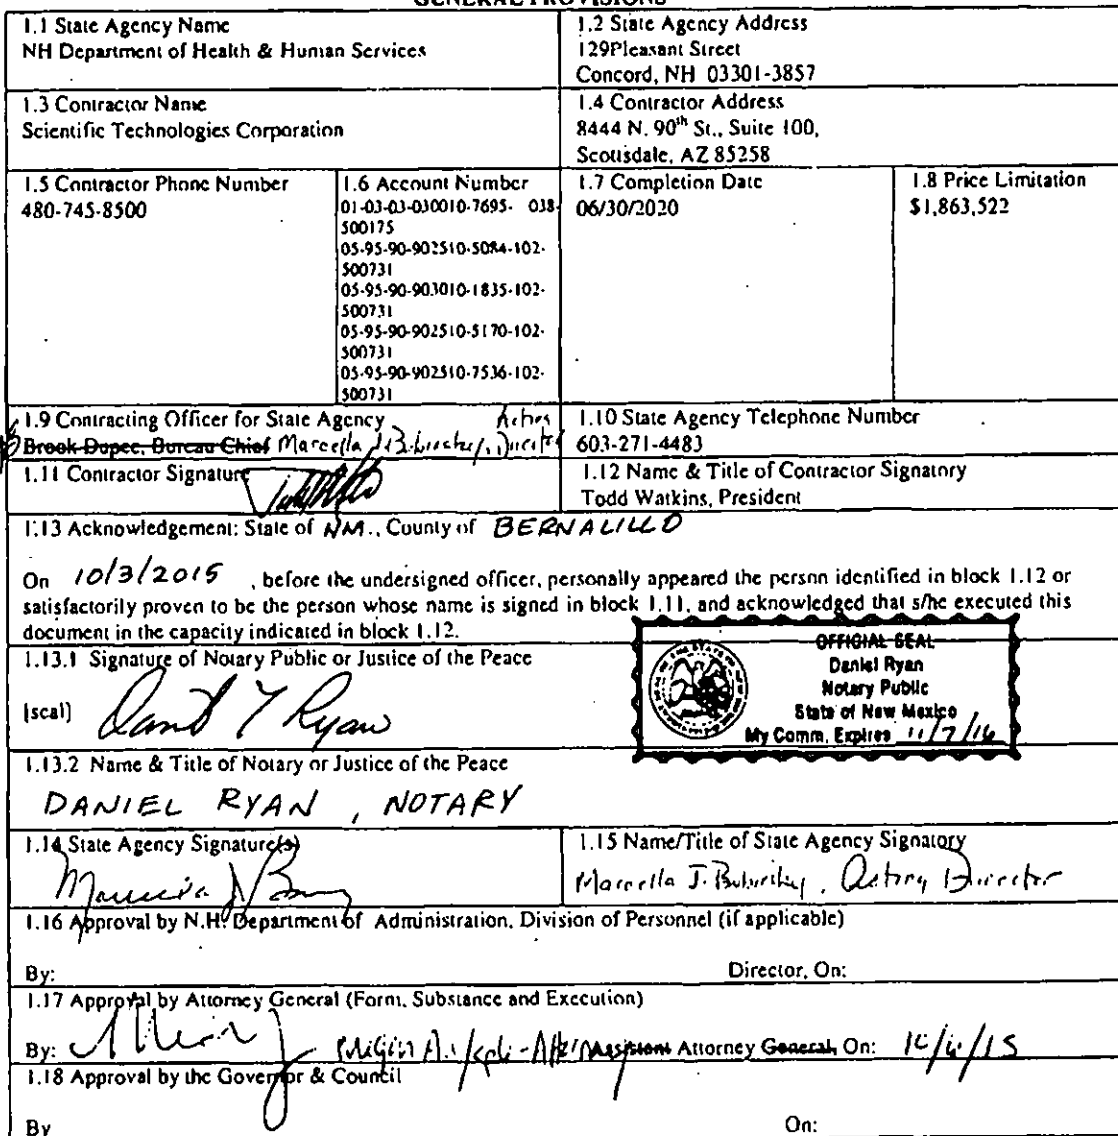 GENERAL PROVISIONS
1.1 State Agency Name
NH Department of Health & Human Services
1.2 State Agency Address
129Pleasant Street
Concord, NH 03301-3857
1.3 Contractor Name
Scientific Technologies Corporation
1.4 Contractor Address
8444 N. 90th St., Suite 100,
Scottsdale, AZ 85258
1.5 Contractor Phone Number
480-745-8500
1.6 Account Number
01-03-03-030010-7695- 038-
500175
05-95-90-902510-5084-102-
500731
05-95-90-903010-1835-102-
500731
05-95-90-902510-5170-102-
500731
05-95-90-902510-7536-102-
500731
1.7 Completion Date
06/30/2020
1.8 Price Limitation
$1,863,522
1.9 Contracting Officer for State Agency Acting
Brook Dupee, Bureau Chief Marcella J. Director
1.10 State Agency Telephone Number
603-271-4483
1.11 Contractor Signature
1.12 Name & Title of Contractor Signatory
Todd Watkins, President
1.13 Acknowledgement: State of NM., County of BERNALILLO
On 10/3/2015 , before the undersigned officer, personally appeared the person identified in block 1.12 or
satisfactorily proven to be the person whose name is signed in block 1.11, and acknowledged that s/he executed this
document in the capacity indicated in block 1.12.
1.13.1 Signature of Notary Public or Justice of the Peace
[seal]
Ryan
OFFICIAL SEAL
Daniel Ryan
Notary Public
State of New Mexico
My Comm. Expires 11/7/16
1.13.2 Name & Title of Notary or Justice of the Peace
DANIEL RYAN , NOTARY
1.14 State Agency Signature(s)
1.15 Name/Title of State Agency Signatory
Marcella J. , Acting Director
1.16 Approval by N.H. Department of Administration, Division of Personnel (if applicable)
By: Director, On:
1.17 Approval by Attorney General (Form, Substance and Execution)
By: Assistant Attorney General, On:
1.18 Approval by the Governor & Council
By On: